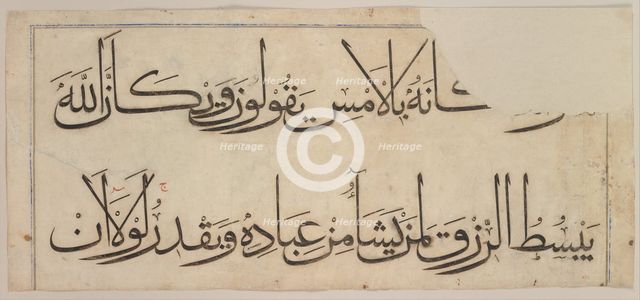 كانهُ بالامسِ يقولون ويكانَّ اللهَ
يبسُطُ الرّزق لمن يشأُ من عبادِهِ ويقدرُ لولا ان
Heritage
Heritage
Heritage
Heritage
Heritage
Heritage